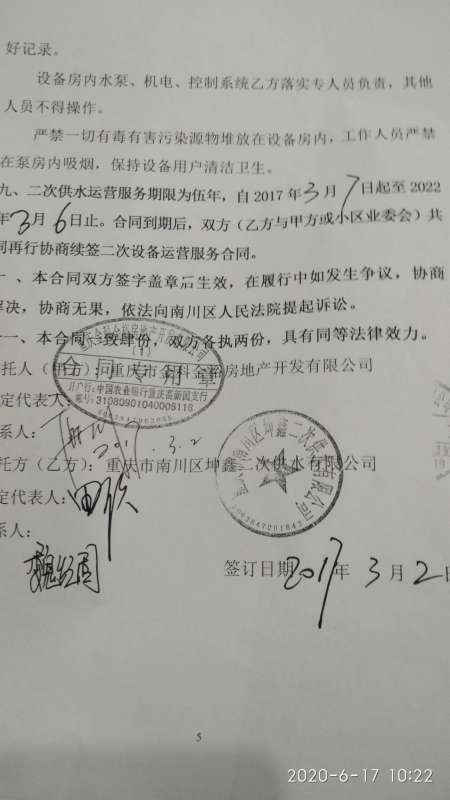 好记录。
设备房内水泵、机电、控制系统乙方落实专人员负责，其他
人员不得操作。
严禁一切有毒有害污染源物堆放在设备房内，工作人员严禁
在泵房内吸烟，保持设备用户清洁卫生。
九、二次供水运营服务期限为伍年，自2017年3月7日起至2022
年3月6日止。合同到期后，双方（乙方与甲方或小区业委会）共
同再行协商续签二次设备运营服务合同。
一、本合同双方签字盖章后生效，在履行中如发生争议，协商
解决，协商无果，依法向南川区人民法院提起诉讼。
一、本合同一致肆份，双方各执两份，具有同等法律效力。
托人（甲方）：重庆市金科金裕房地产开发有限公司
合同专用章
（1）
开户行：中国农业银行重庆高新园支行
账号：31080901040005118
定代表人：
系人：
2017.3.2
托方（乙方）：重庆市南川区坤鑫二次供水有限公司
定代表人：
系人：
签订日期 2017年3月2日
5
2020-6-17 10:22